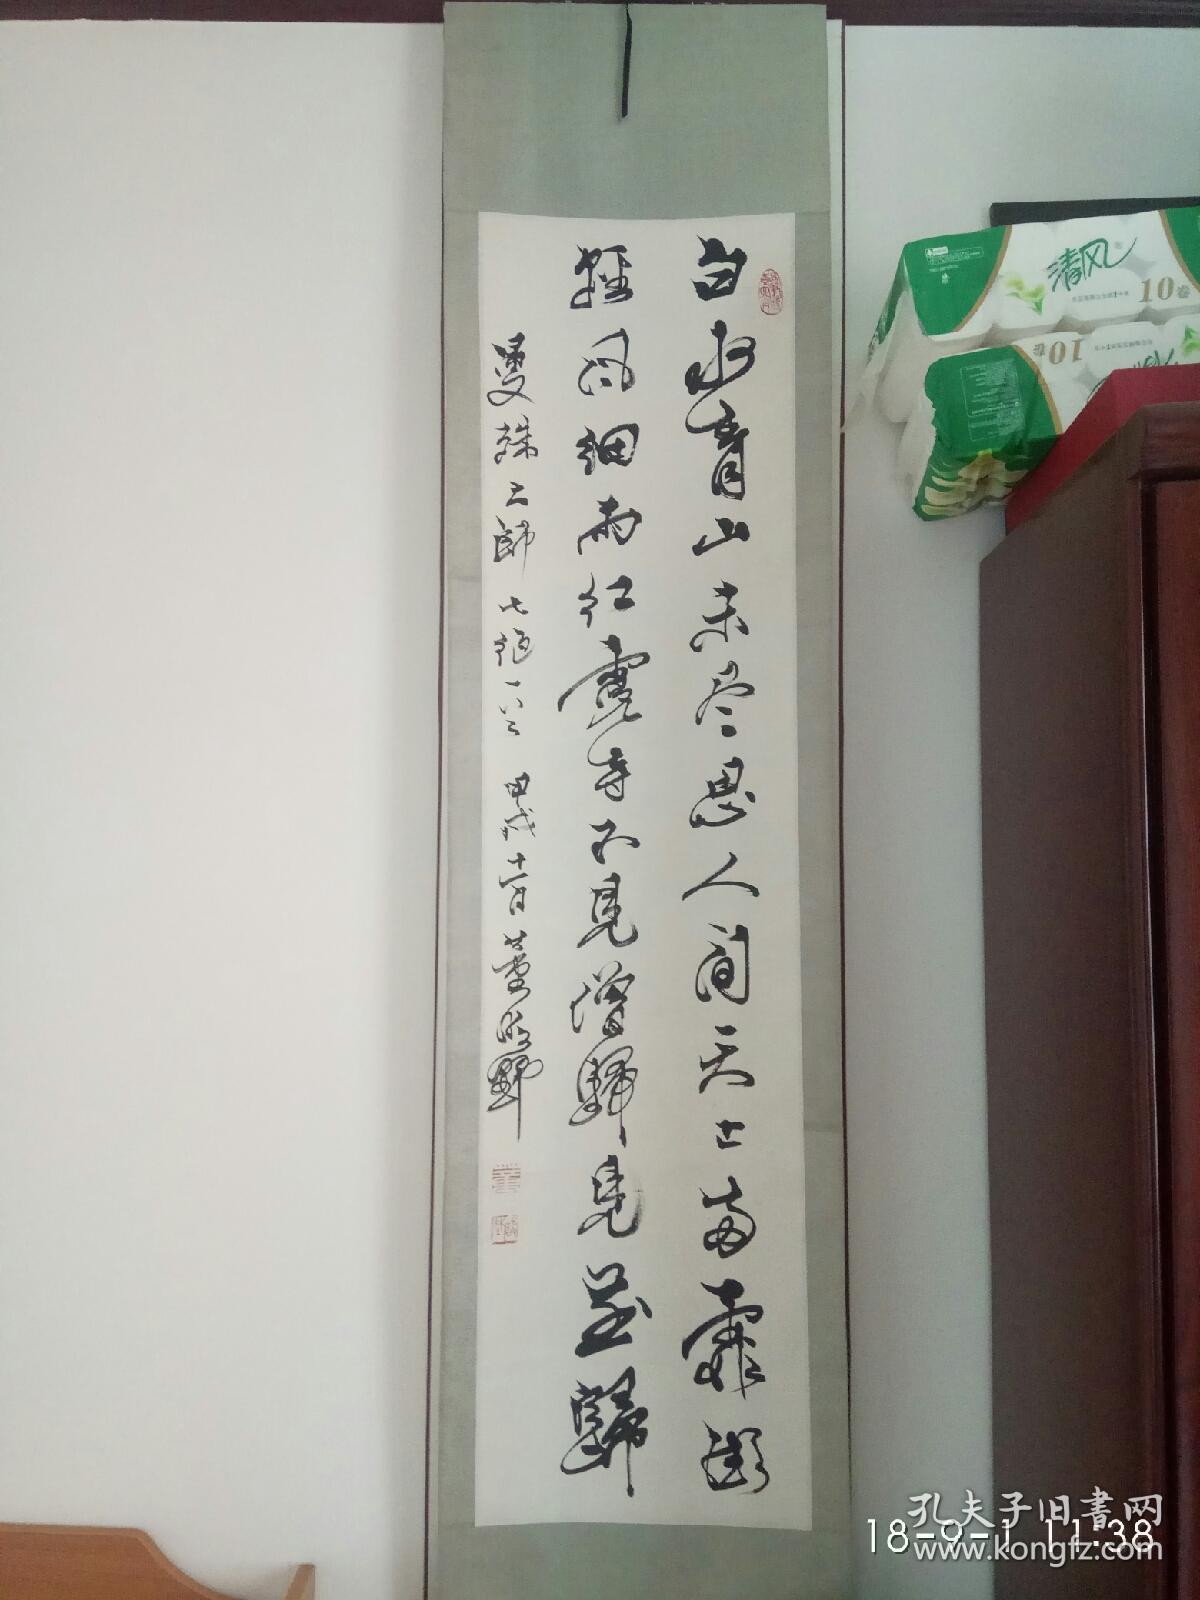 白水青山未尽思人间天上两霏微
轻风细雨红霓寺不见僧归见燕归
曼殊大師七絕一首 甲戌十一月 黄
清风
10卷
10卷
孔夫子旧書网
www.kongfz.com
18-9-1 11:38